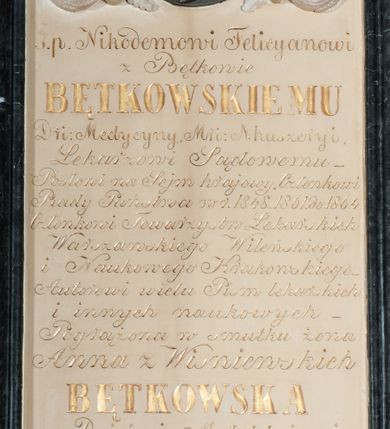 Ś.p. Nikodemowi Felicyanowi
z Bętkowic
BĘTKOWSKIEMU
Dri: Medycyny, Mri: Akuszeryi,
Lekarzowi Sądowemu –
Posłowi na Sejm krajowy, Członkowi
Rady Państwa w r. 1848. 1861 do 1864
Członkowi Towarzystw Lekarskich
Warszawskiego Wileńskiego
i Naukowego Krakowskiego –
Autorowi wielu Pism lekarskich
i innych naukowych –
Pogrążona w smutku żona
Anna z Wiśniewskich
BĘTKOWSKA